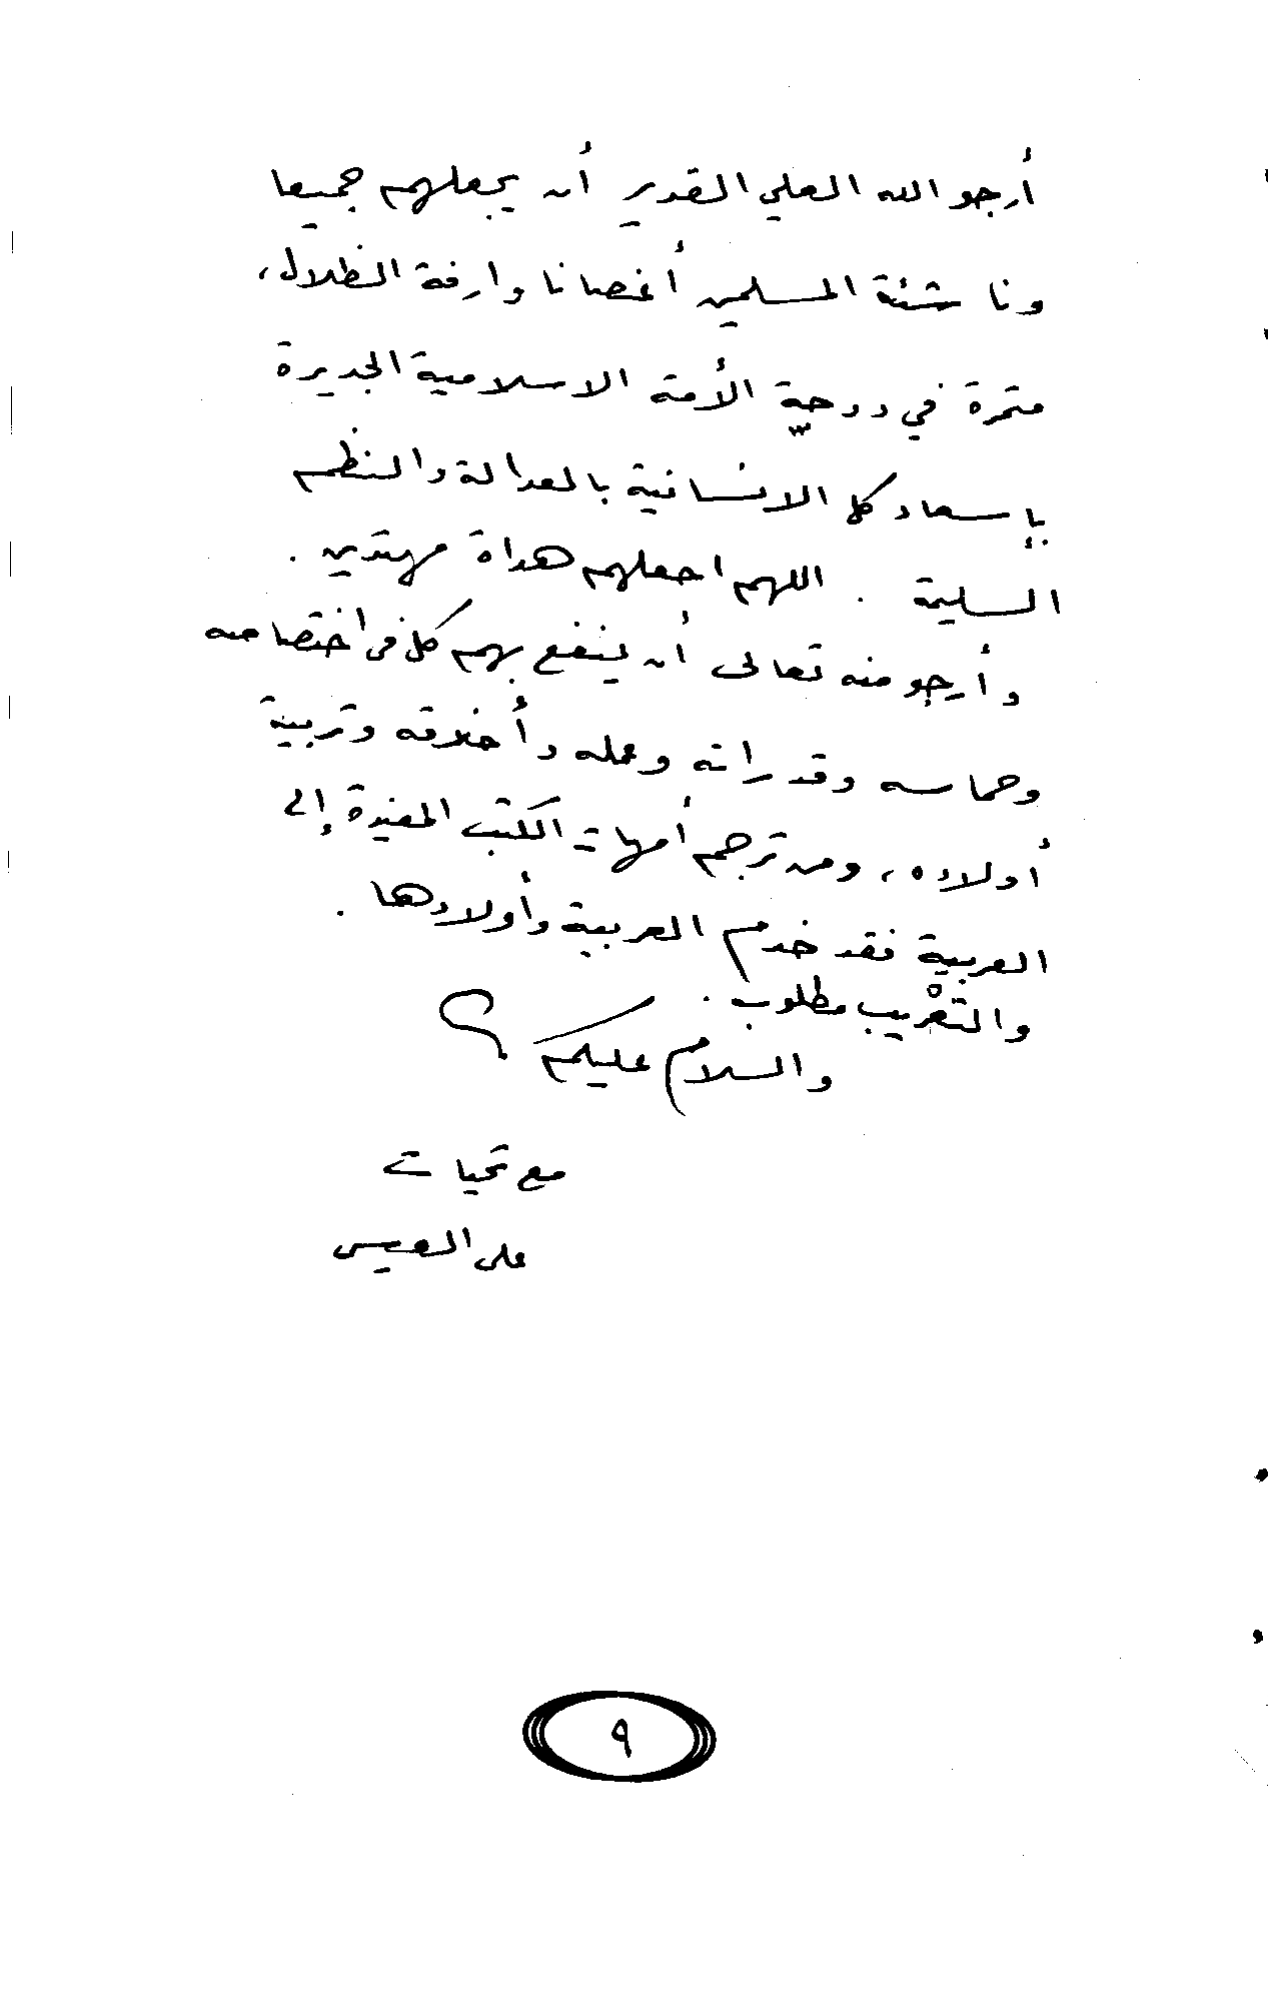 أرجو الله العلي القدير أن يجعلهم جميعا
وناشئة المسلمين أغصانا وارفة الظلال،
مثمرة في دوحة الأمة الاسلامية الجديرة
بإسعاد كل الانسانية بالعدالة والنظم
السليمة . اللهم اجعلهم هداة مهتدين .
وأرجو منه تعالى أن ينفع بهم كل في اختصاصه
وحماسه وقدراته وعمله وأخلاقه وتربية
أولاده، ومن ترجم أمهات الكتب المفيدة إلى
العربية فقد خدم العربية وأولادها .
والتعْريب مطلوب .
والسلام عليكم
مع تحيات
على العيسى
٩